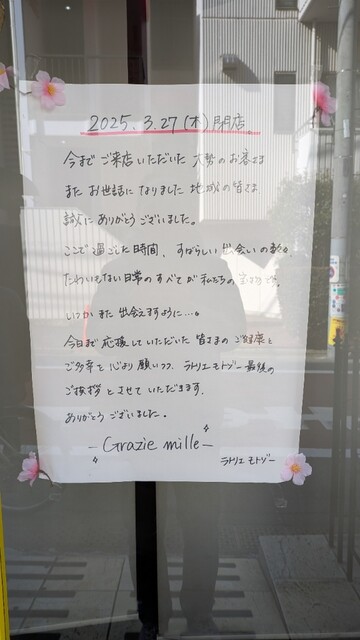 2025. 3.27 (木) 閉店
今まで ご来店いただいた 大勢の お客さま
また お世話に なりました 地域の 皆さま
誠に ありがとう ございました。
ここで 過ごした 時間、 すばらしい 出会いの 数々
たわいもない 日常の すべてが 私たちの 宝物です。
いつか また 出会えますように…。
今日まで 応援して いただいた 皆さまの ご健康と
ご多幸を 心より 願いつつ、 ラトリエ モトゾー 最後の
ご挨拶 と させて いただきます。
ありがとう ございました。
― Grazie mille ―
ラトリエ モトゾー